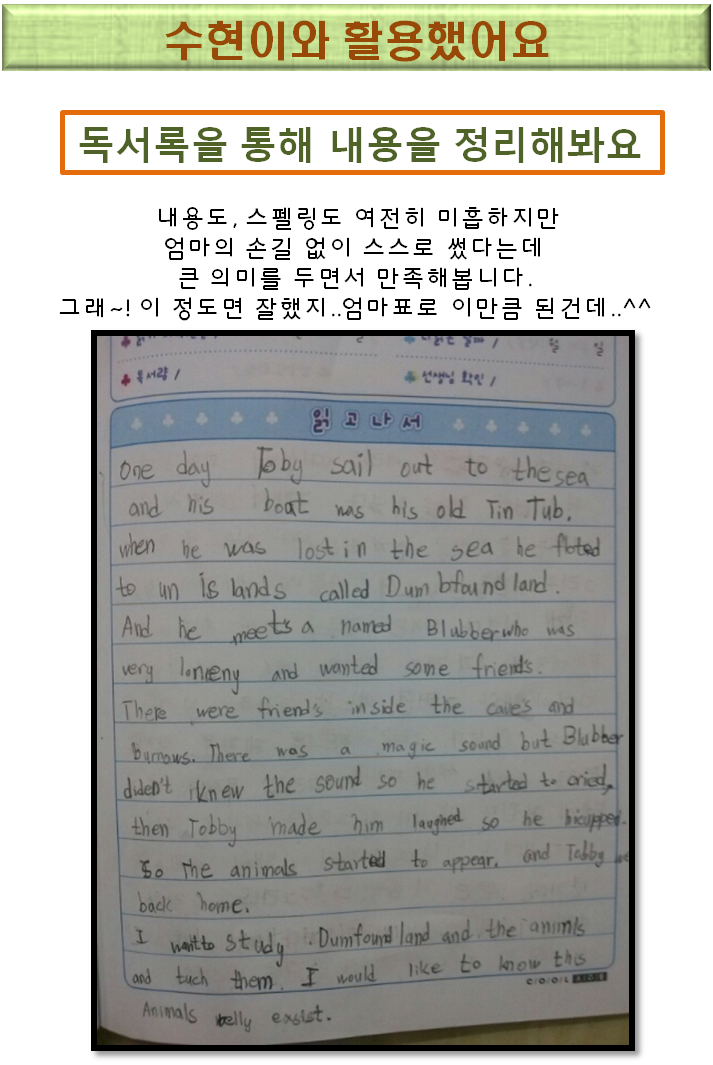 수현이와 활용했어요
독서록을 통해 내용을 정리해봐요
내용도, 스펠링도 여전히 미흡하지만
엄마의 손길 없이 스스로 썼다는데
큰 의미를 두면서 만족해봅니다.
그래~! 이 정도면 잘했지..엄마표로 이만큼 된건데..^^
월 일
독서량 / 선생님 확인 /
읽고나서
One day Toby sail out to the sea
and his boat was his old Tin Tub.
when he was lost in the sea he floted
to un islands called Dumbfoundland.
And he meets a named Blubber who was
very and wanted some friends.
There were friends inside the caves and
burrows. There was a magic sound but Blubber
diden't knew the sound so he started to cried,
then Tobby made him laughed so he hicupped.
So The animals started to appear. and Tobby we
back home.
I want to study Dumfoundland and the animls
and tuch them. I would like to know this
Animals exsist.
COOL